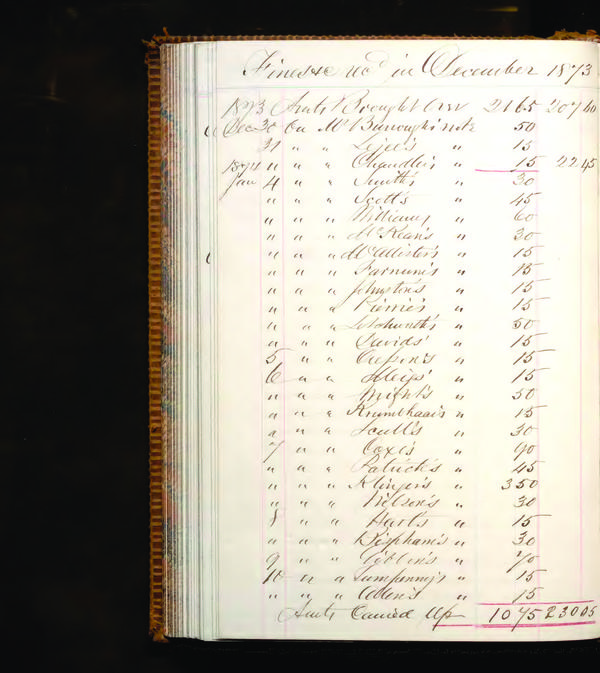 Fines &c rec'd in December 1873
1873 Amts Brought Over 2165 20760
Dec 30 On McBurrough's note 50
31 " " Lejee's " 15
1874 " " " Chandler's " 15 2245
Jan 4 " " Smith's " 30
" " " Scott's " 45
" " " Williams " 60
" " " McKean's " 30
" " " McAllister's " 15
" " " Farnum's " 15
" " " Johnston's " 15
" " " Pierrie's " 15
" " " " 50
" " " Davids' " 15
5 " " " 15
6 " " Sleips' " 15
" " " " 50
" " " Krumbhaar's " 15
" " " Scull's " 30
7 " " Coxe's " 90
" " " Patrick's " 45
" " " Klinger's " 350
" " " Nelson's " 30
8 " " Hart's " 15
" " " Bispham's " 30
9 " " Gibbin's " 70
10 " " " 15
" " " Allen's " 15
Amts Carried Up 1075 23005